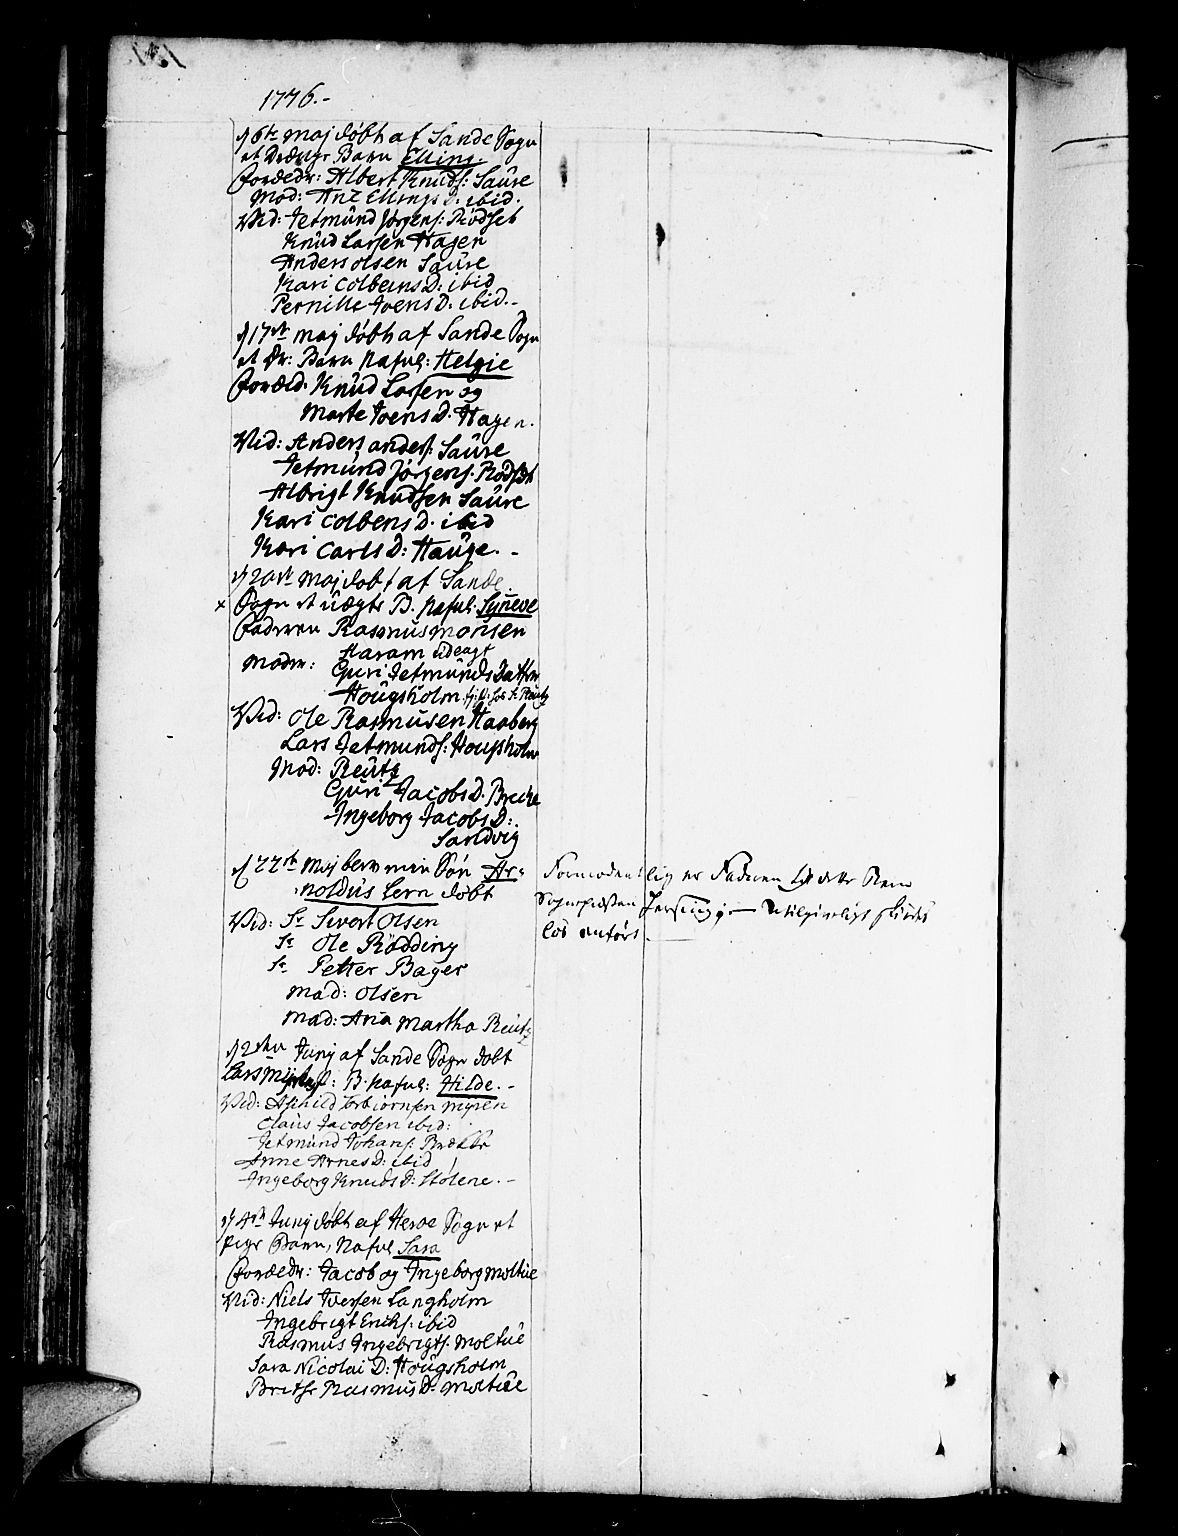 1776.-
d 6te Maj døbt af Sande Sogn
et Drænge Barn Elling.
Forældr: Albert Knuds: Saure
Mod: Ane Ellings D: ibid.
Vid: Jetmund Jørgens: Rødset
Knud Larsen Hagen
Anders olsen Saure
Kari Colbens D: ibid
Pernille Ivens D: ibid.-
d 17de Maj døbt af Sande Sogn
et Dr: Barn Nafnl: Helgie
Foræld: Knud Larsen og
Marte Ivens D. Hagen.
Vid: Anders anders: Saure
Jetmund Jørgens. Rødset
Albrigt Knudsen Saure
Kari Colbens D. ibid
Kari Carls D: Hauge. -
d 20de Maj døbt af Sande
x Sogn et uægte B. Nafnl. Syneve
Faderen Rasmus Monsen
Haram
Moder: Guri Jetmunds Datter
Hougsholm
Vid: Ole Rasmusen Haaberg
Lars Jetmunds: Hougsholm
Mad: Reutz
Guri Jacobs D. Brecke
Ingeborg Jacobs D:
Sandvig
d 22de Maj blev min Søn Ar=
noldus Lern døbt
Vid: Sr Sivert Olsen
Sr Ole Rødding
Sr Petter Bager
Mad: Olsen
Mad: Ana Martha Reutz
d 2den Junj af Sande Sogn døbt
Lars B. Nafnl: Hilde. -
Vid: Torbiørnsen Myren
Claus Jacobsen ibid:
Jetmund Johans: Brække
Anne Arnes D: ibid
Ingeborg Knuds D: Stølene. -
d 4de Junj døbt af Herøe Sogn et
Pige Barn, Nafnl Sara
Forældr: Jacob og Ingeborg Moltue
Vid: Niels Iversen Langholm
Ingebrigt Erichs: ibid
Rasmus Ingebrigts. Moltue
Sara Nicolai D: Hougsholm
Brithe Rasmus D: Moltue
Formodentlig er Faderen til dette Barn
Sognepræsten
løs anført.